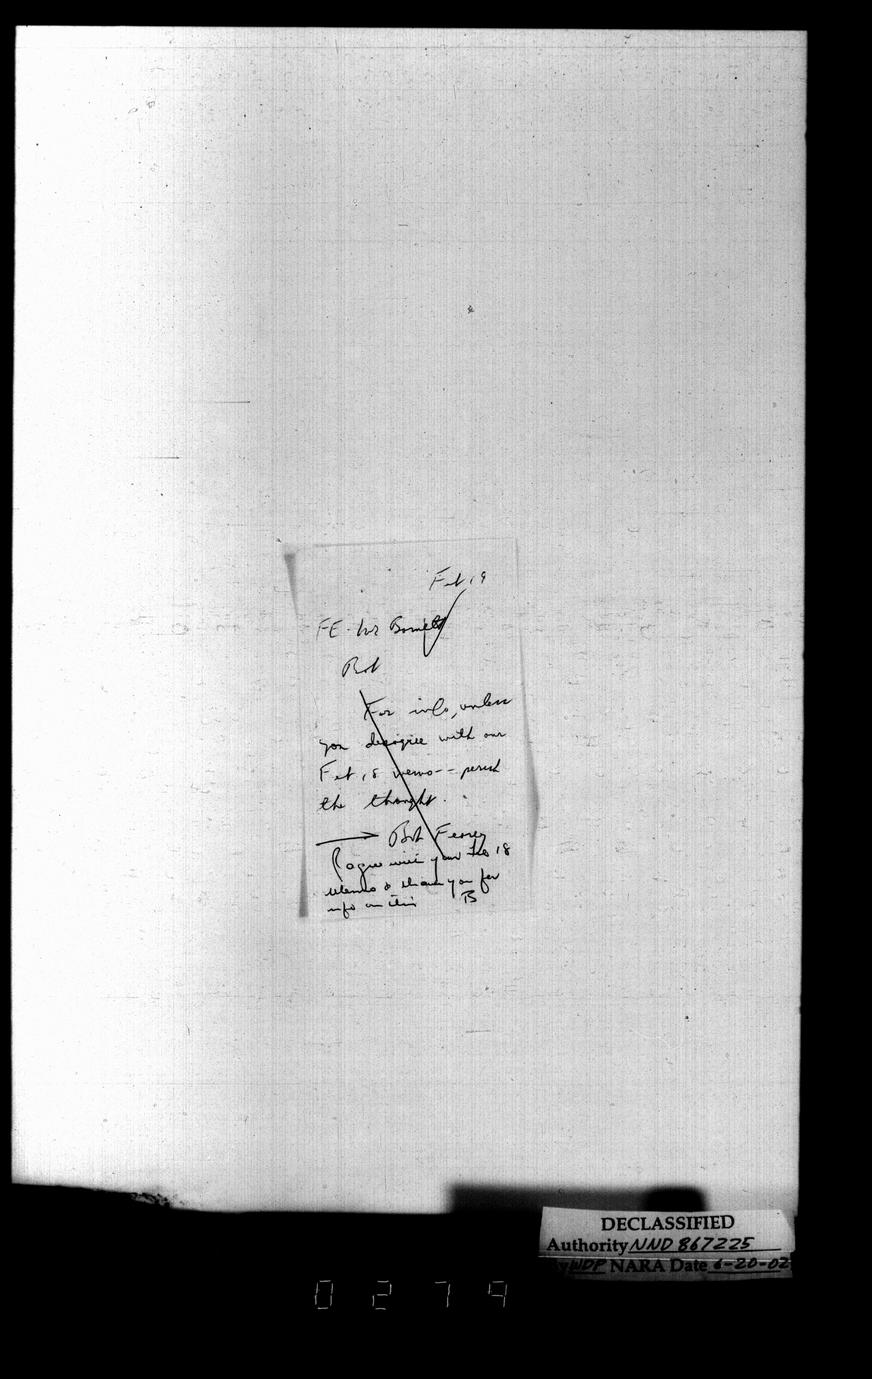 Feb 19
FE - Mr Barnett
Bob
For info, unless
you disagree with our
Feb 18 memo -- perish
the thought.
Bob Fearey
I agree with your Feb 18
memo & thank you for
info on this
B
DECLASSIFIED
Authority NND 867225
By WDP NARA Date 6-20-02
0279